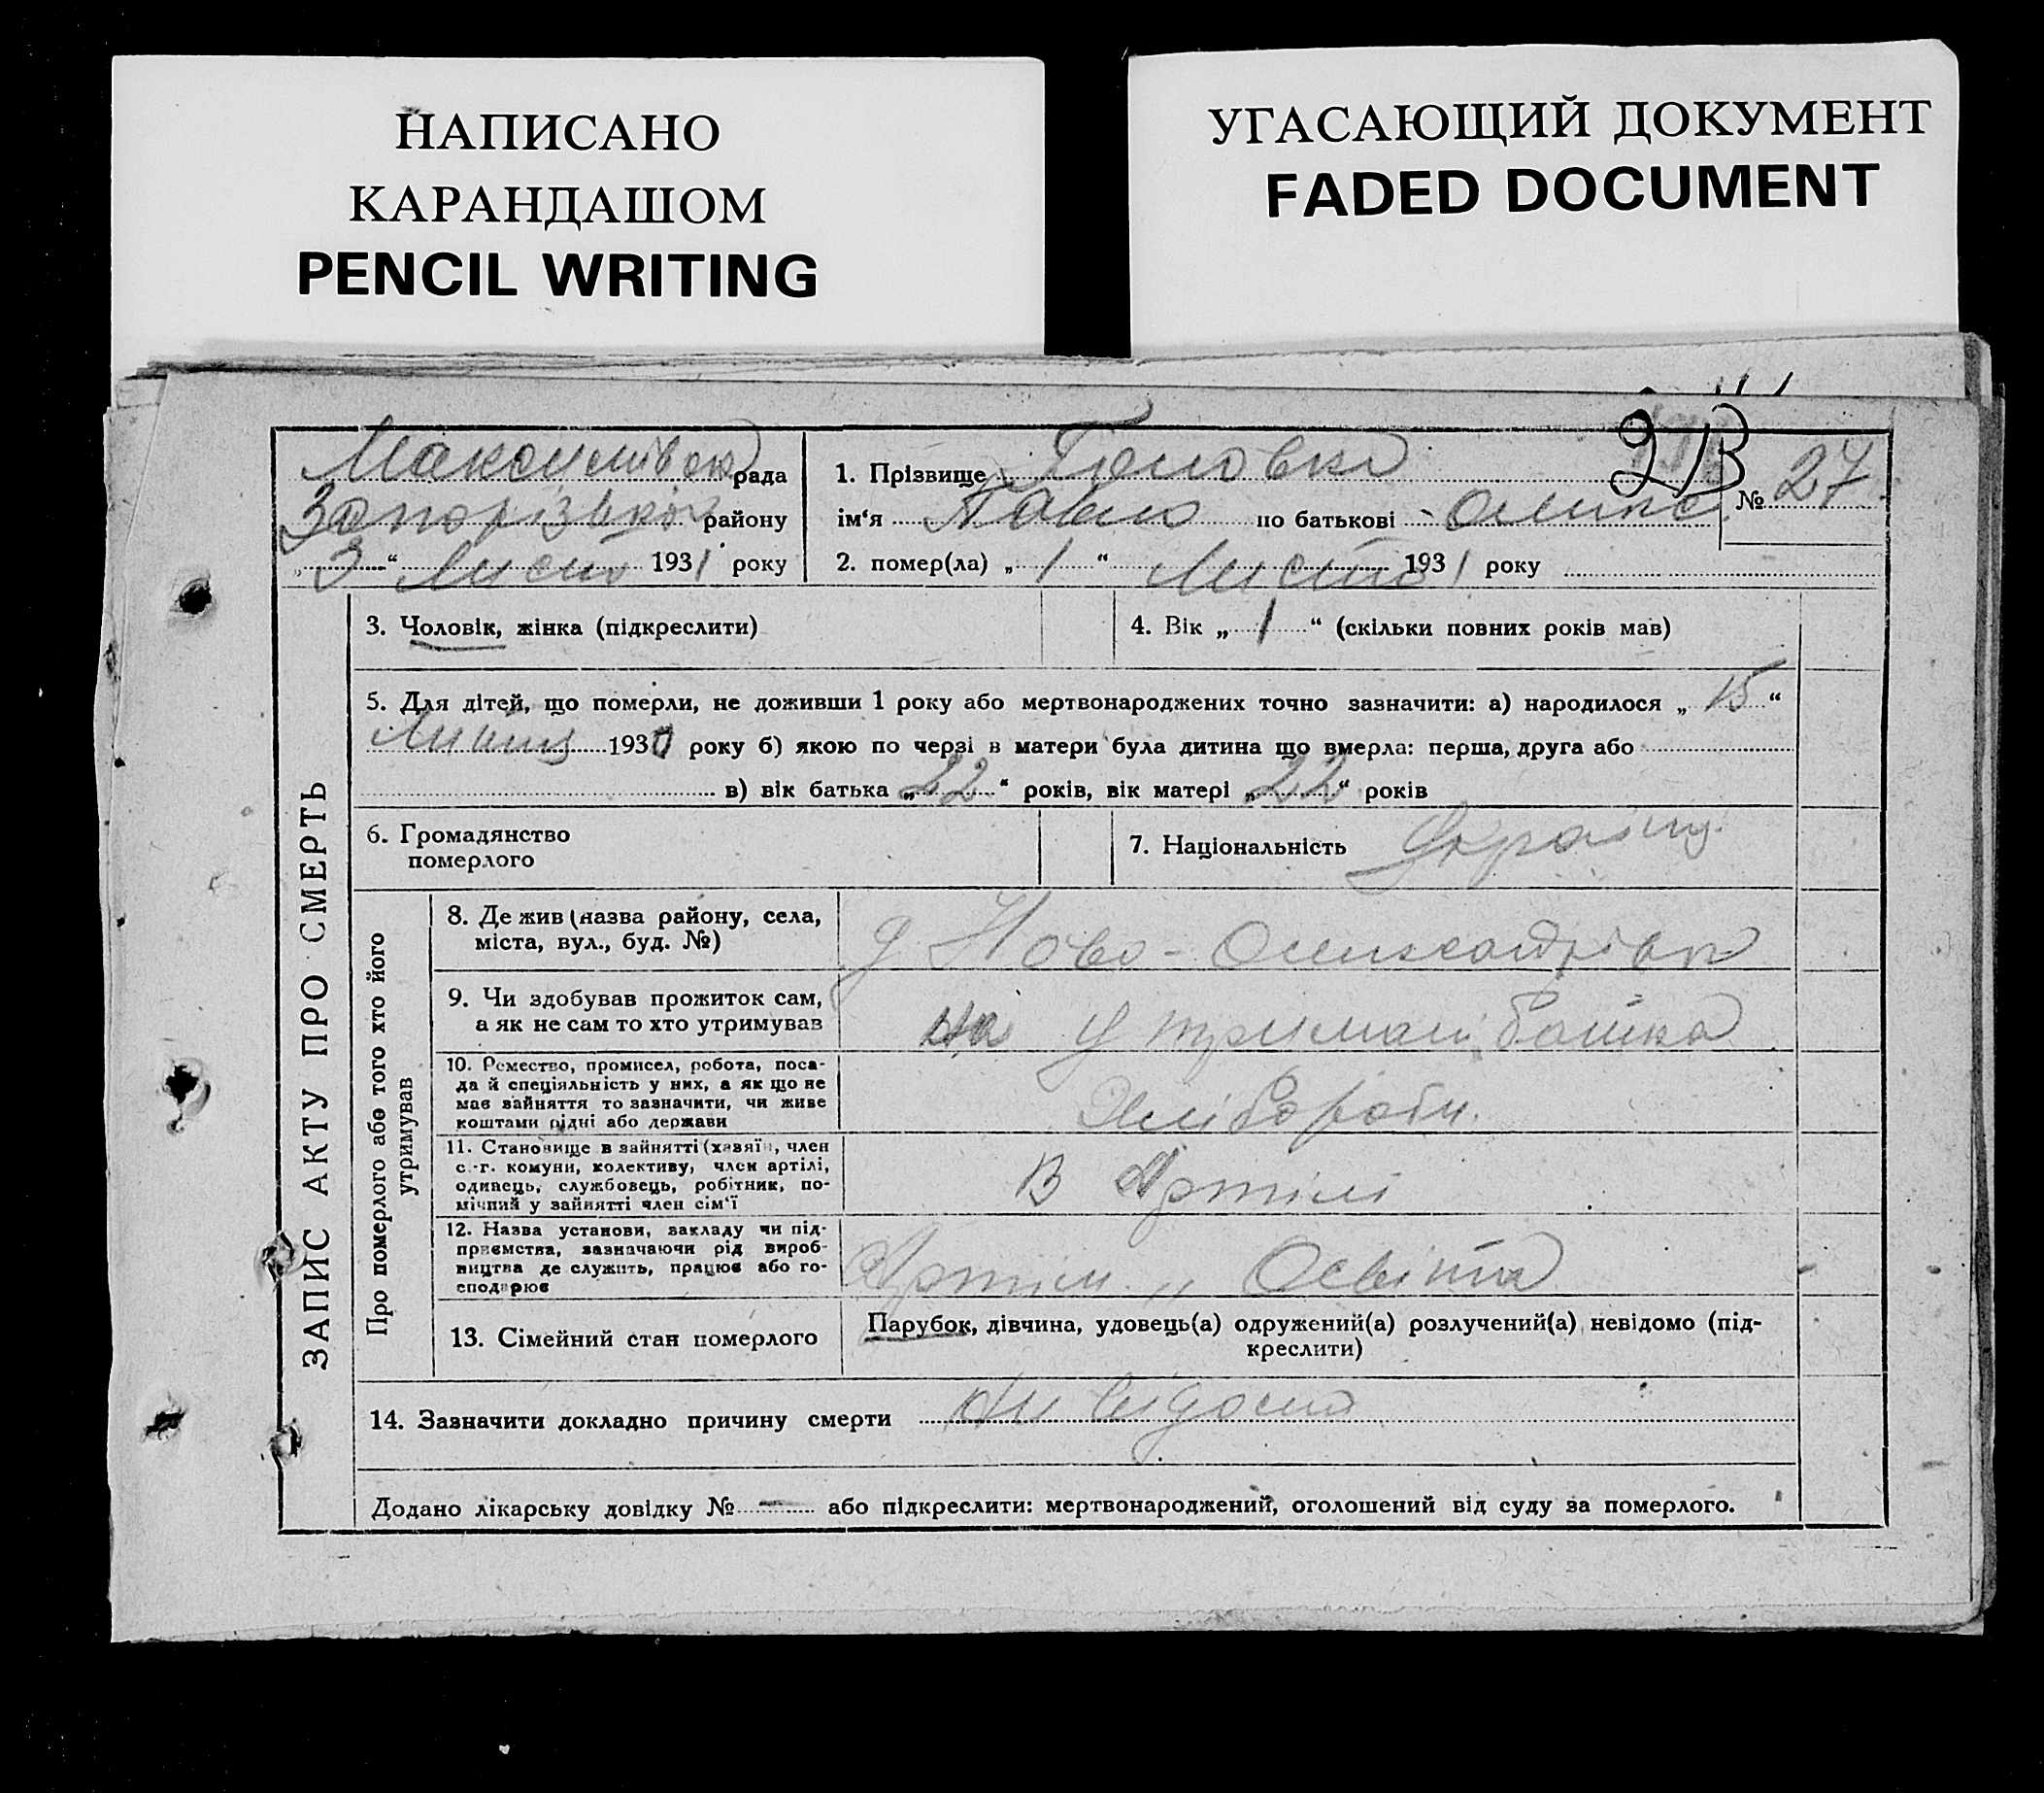 НАПИСАНО
КАРАНДАШОМ
PENCIL WRITING
УГАСАЮЩИЙ ДОКУМЕНТ
FADED DOCUMENT
Максимівск рада
Запорізького району
„ 3 “ Листо 1931 року
1. Прізвище Головко
ім‘я Павло по батькові Олекс.
2. помер(ла) „ 1 “ Листо 1931 року
№ 27
3. Чоловік, жінка (підкреслити)
4. Вік „ 1 “ (скільки повних років мав)
5. Для дітей, що померли, не доживши 1 року або мертвонароджених точно зазначити: а) народилося „ 15 “
Липня 1930 року б) якою по черзі в матери була дитина що вмерла: перша, друга або
в) вік батька „ 22 “ років, вік матері „ 22 “ років
6. Громадянство
померлого
7. Національність Україн.
ЗАПИС АКТУ ПРО СМЕРТЬ
Про померлого або того хто його
утримував
8. Де жив (назва району, села,
міста, вул., буд. №)
Ново-Олександрівк
9. Чи здобував прожиток сам,
а як не сам то хто утримував
на утриман. батька
10. Ремество, промисел, робота, поса-
да й спеціяльність у них, а як що не
має зайняття то зазначити, чи живе
коштами рідні або держави
Хлібороби.
11. Становище в зайнятті (хазяїн, член
с.-г. комуни, колективу, член артілі,
одинець, службовець, робітник, по-
мічний у зайнятті член сім‘ї
В Артілі
12. Назва установи, закладу чи під-
приємства, зазначаючи рід вироб-
ництва де служить, працює або го-
сподарює
Артіли „ Освіта
13. Сімейний стан померлого
Парубок, дівчина, удовець(а) одружений(а) розлучений(а) невідомо (під-
креслити)
14. Зазначити докладно причину смерти не відома
Додано лікарську довідку № — або підкреслити: мертвонароджений, оголошений від суду за померлого.